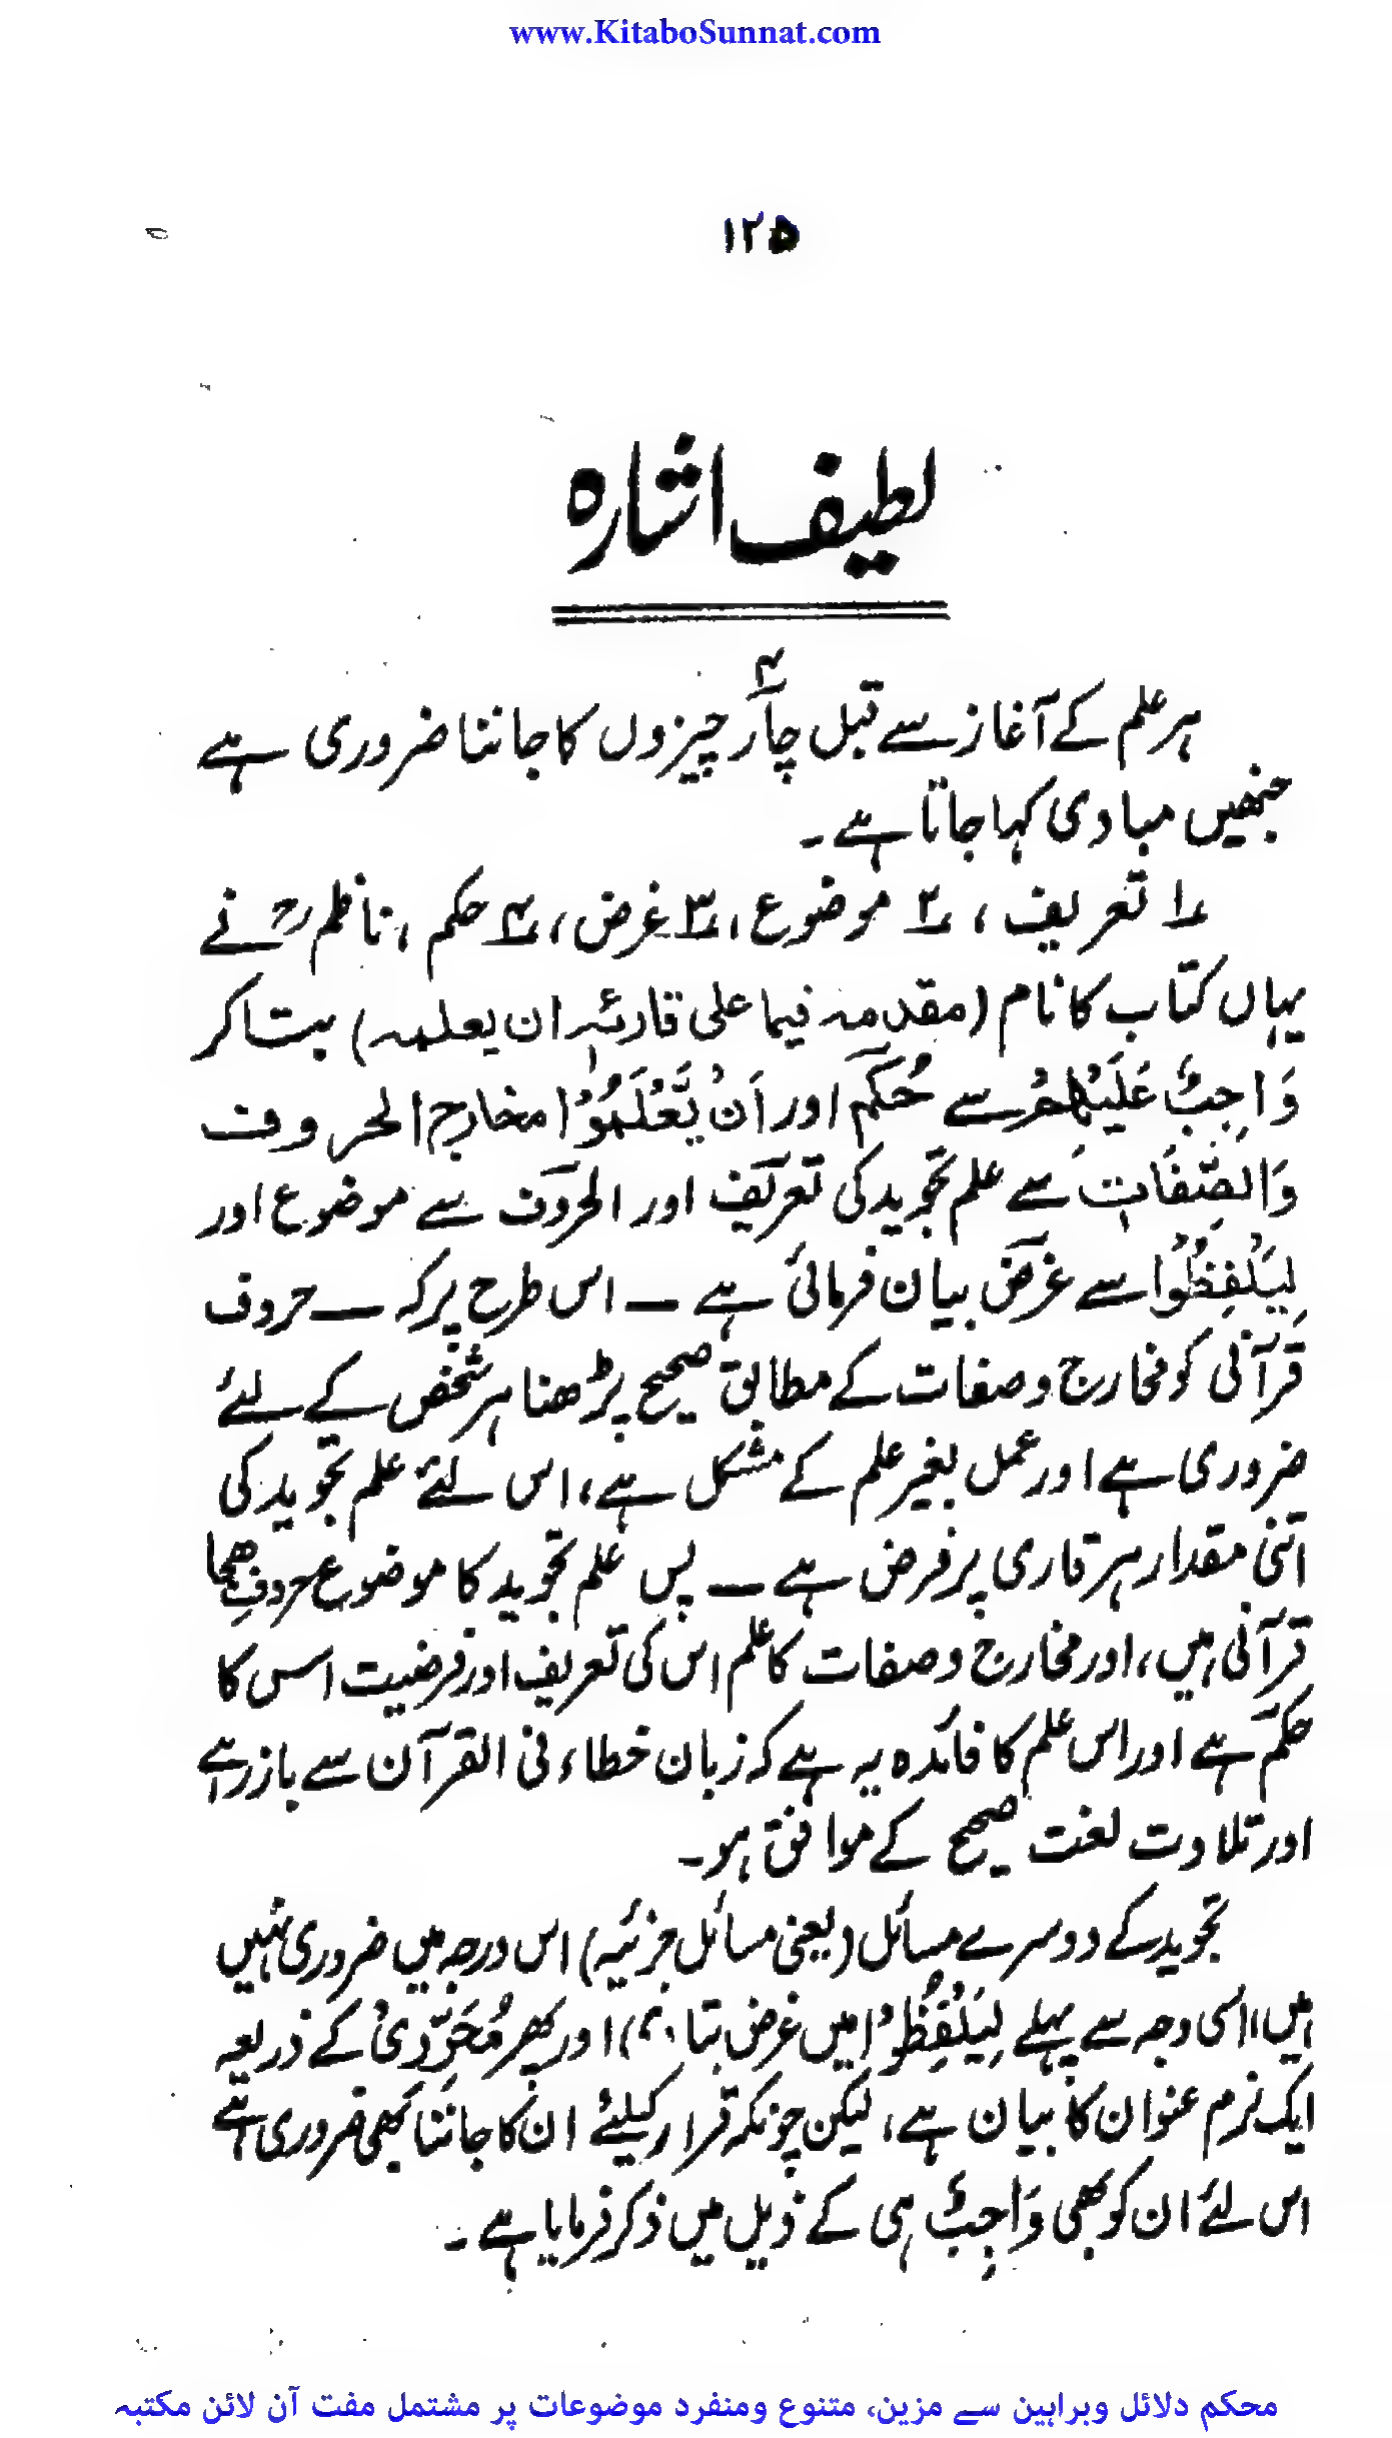 www.KitaboSunnat.com
۱۲۵
لطیف اشارہ
ہر علم کے آغاز سے قبل چار۴ چیزوں کا جاننا ضروری ہے
جنھیں مبادی کہا جاتا ہے ۔
۱؎ تعریف ، ۲؎ موضوع ، ۳؎ غرض ، ۴؎ حکم ، ناظمؒ نے
یہاں کتاب کا نام (مقدمہ فیما علی قارئہٖ ان یعلمہ) بتا کر
وَاجِبٌ عَلَیْهِمْ سے حُکم اور اَنْ یَّعْلَمُوْا مخارج الحروف
وَالصِّفَاتِ سے علم تجوید کی تعریف اور الحروف سے موضوع اور
لِیَلْفِظُوْا سے غرض بیان فرمائی ہے ــ اس طرح پر کہ ــ حروف
قرآنی کو مخارج و صفات کے مطابق صحیح پڑھنا ہر شخص کے لئے
ضروری ہے اور عمل بغیر علم کے مشکل ہے، اس لئے علم تجوید کی
اتنی مقدار ہر قاری پر فرض ہے ــ پس علم تجوید کا موضوع حروفِ ھجا
قرآنی ہیں، اور مخارج و صفات کا علم اس کی تعریف اور فرضیت اس کا
حکم ہے اور اس علم کا فائدہ یہ ہے کہ زبان خطاء فی القرآن سے باز رہے
اور تلاوت لغت صحیح کے موافق ہو۔
تجوید کے دوسرے مسائل (یعنی مسائل جزئیہ) اس درجہ میں ضروری نہیں
ہیں، اسی وجہ سے پہلے لِیَلْفِظُوْا میں غرض بتا اور پھر مُحَرِّرِیْ کے ذریعہ
ایک نرم عنوان کا بیان ہے، لیکن چونکہ قراء کیلئے ان کا جاننا بھی ضروری ہے
اس لئے ان کو بھی وَاجِبٌ ہی کے ذیل میں ذکر فرمایا ہے ۔
محکم دلائل وبراہین سے مزین، متنوع ومنفرد موضوعات پر مشتمل مفت آن لائن مکتبہ